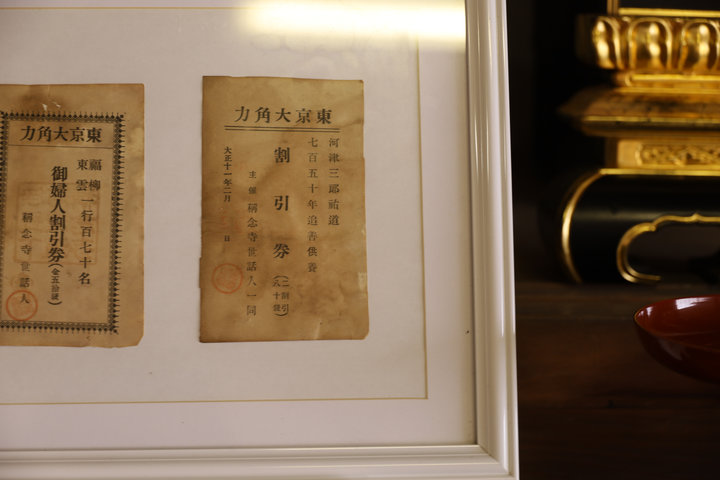 東京大角力
河津三郎祐道
七百五十年追善供養
割引券
（二割引
八十銭）
主催 稱念寺世話人一同
大正十一年二月 日
東京大角力
福柳
東雲
一行百七十名
御婦人割引券（金五拾銭）
稱念寺世話人